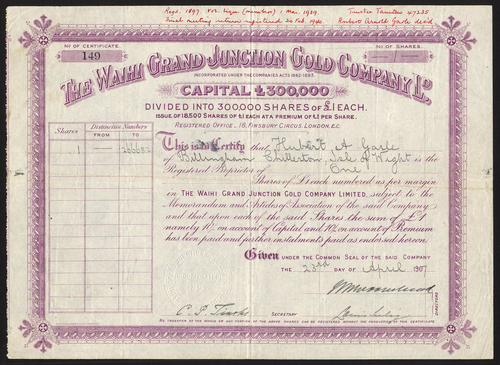 Regd. 1897. Vol. liqn. (members) 1 Mar. 1939.
Final meeting return registered 20 Feb. 1940.
Hubert Arnold Garle decd
No OF CERTIFICATE.
149
No OF SHARES.
THE WAIHI GRAND JUNCTION GOLD COMPANY LD
INCORPORATED UNDER THE COMPANIES ACTS 1862-1893.
CAPITAL £300,000
DIVIDED INTO 300,000 SHARES OF £1 EACH.
ISSUE OF 18,500 SHARES OF £1 EACH AT A PREMIUM OF £1 PER SHARE.
REGISTERED OFFICE, 18, FINSBURY CIRCUS, LONDON, E.C.
Shares
Distinctive Numbers
FROM
TO
1
266682
This is to Certify that Hubert A Garle
of Billingham Chillerton, Isle of Wight is the
Registered Proprietor of One
Shares of £1 each numbered as per margin
in THE WAIHI GRAND JUNCTION GOLD COMPANY LIMITED, subject to the
Memorandum and Articles of Association of the said Company
and that upon each of the said Shares the sum of £1
namely 10/- on account of Capital and 10/- on account of Premium
has been paid and further instalments paid as endorsed hereon.
Given UNDER THE COMMON SEAL OF THE SAID COMPANY
THE 23rd DAY OF April 1907
DIRECTORS
SECRETARY